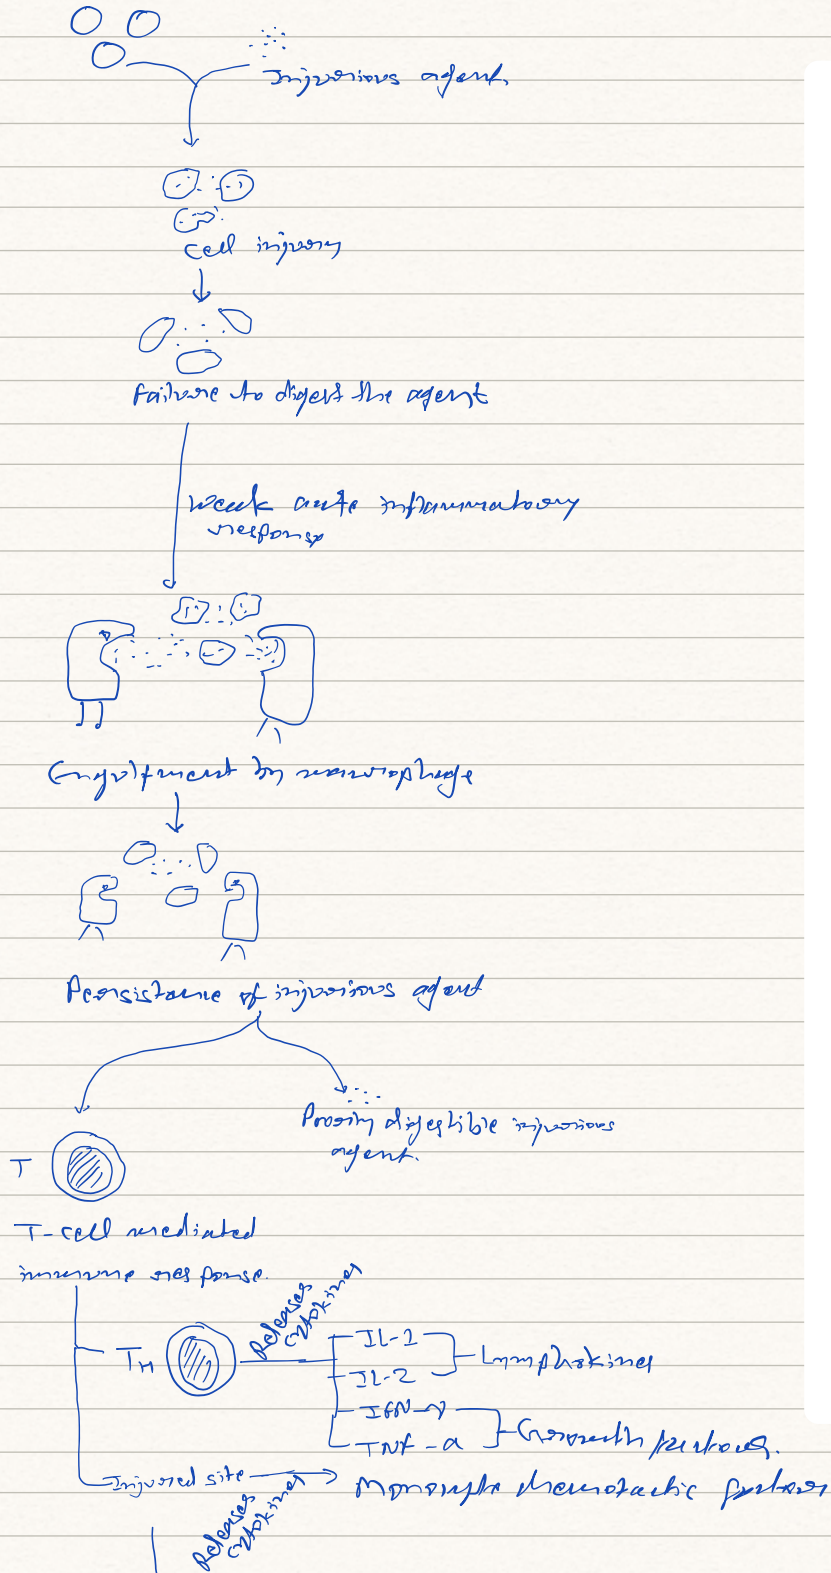 Injurious agent.
Cell injury
Failure to digest the agent
Weak acute inflammatory
response
Engulfment by macrophage
Persistance of injurious agent
Poorly digestible injurious
agent.
T
T-cell mediated
immune response.
TH
Releases
cytokines
IL-1
IL-2
Lymphokines
IFN-γ
TNF-α
Growth factors.
Injured site
Monocyte chemotactic factors
Releases
cytokines